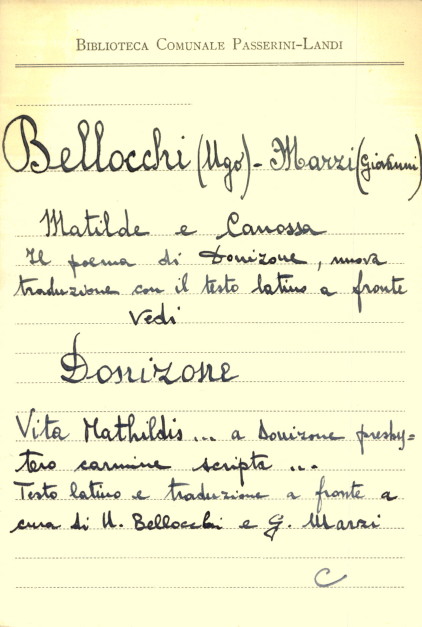 BIBLIOTECA COMUNALE PASSERINI-LANDI
Bellocchi (Ugo) - Marzi (Giovanni)
Matilde e Canossa
Il poema di Donizone, nuova
traduzione con il testo latino a fronte
Vedi
Donizone
Vita Mathildis ... a Donizone presby=
tero carmine scripta ...
Testo latino e traduzione a fronte a
cura di U. Bellocchi e G. Marzi
C